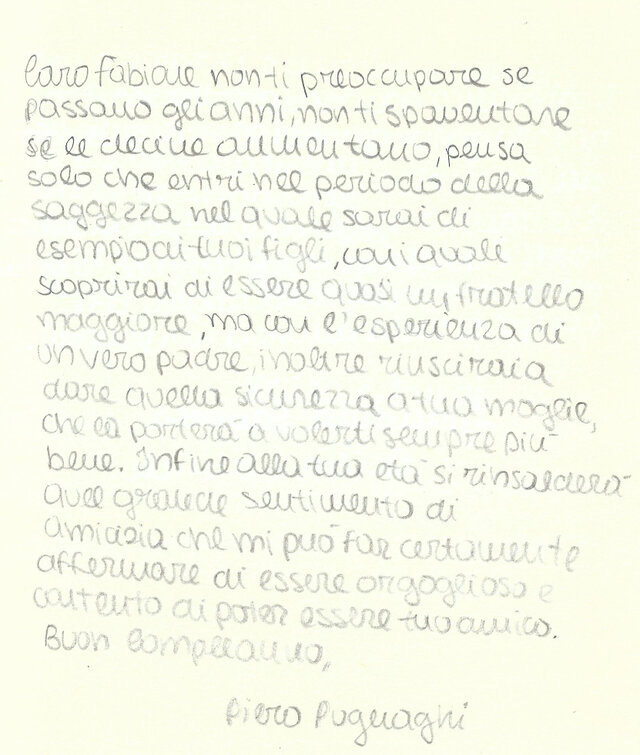 Caro Fabiale non ti preoccupare se
passano gli anni, non ti spaventare
se le decine aumentano, pensa
solo che entri nel periodo della
saggezza nel quale sarai di
esempio ai tuoi figli, con i quali
scoprirai di essere quasi un fratello
maggiore, ma con l'esperienza di
un vero padre, inoltre riuscirai a
dare quella sicurezza a tua moglie,
che la porterà a volerti sempre più
bene. Infine alla tua età si rinsalderà
quel grande sentimento di
amicizia che mi può far certamente
affermare di essere orgoglioso e
contento di poter essere tuo amico.
Buon Compleanno,
Piero Pugnaghi